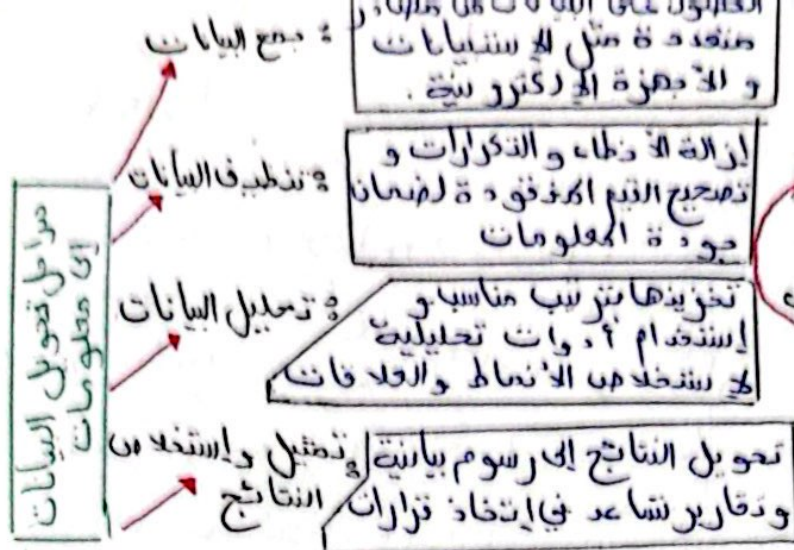 مراحل تحويل البيانات
إلى معلومات
: جمع البيانات
الحصول على البيانات من مصادر
متعددة مثل الإستبيانات
و الأجهزة الإلكترونية .
: تنظيف البيانات
إزالة الأخطاء و التكرارات و
تصحيح القيم المفقودة لضمان
جودة المعلومات
: تحليل البيانات
تخزينها بترتيب مناسب و
إستخدام أدوات تحليلية
لإستخلاص الأنماط والعلاقات
: تمثيل وإستخلاص
النتائج
تحويل النتائج إلى رسوم بيانية
وتقارير تساعد في إتخاذ قرارات